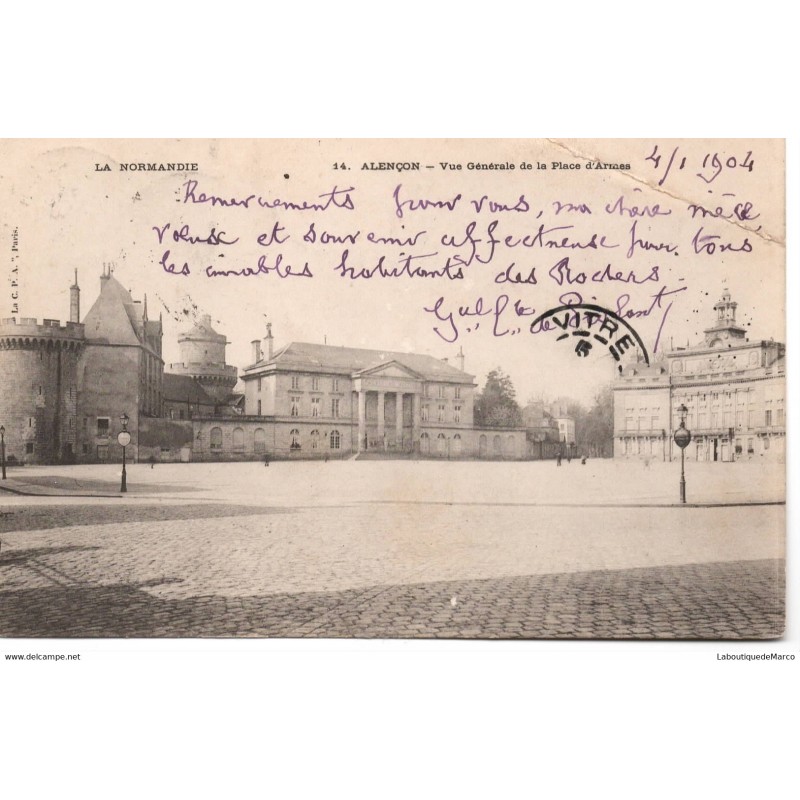 LA NORMANDIE
14. ALENÇON – Vue Générale de la Place d'Armes
4/1 1904
Remerciements pour vous, ma chère
et souvenir affectueuse pour tous
les aimables habitants des Rochers
VITRE
La C. P. A.", Paris.
www.delcampe.net
LaboutiquedeMarco